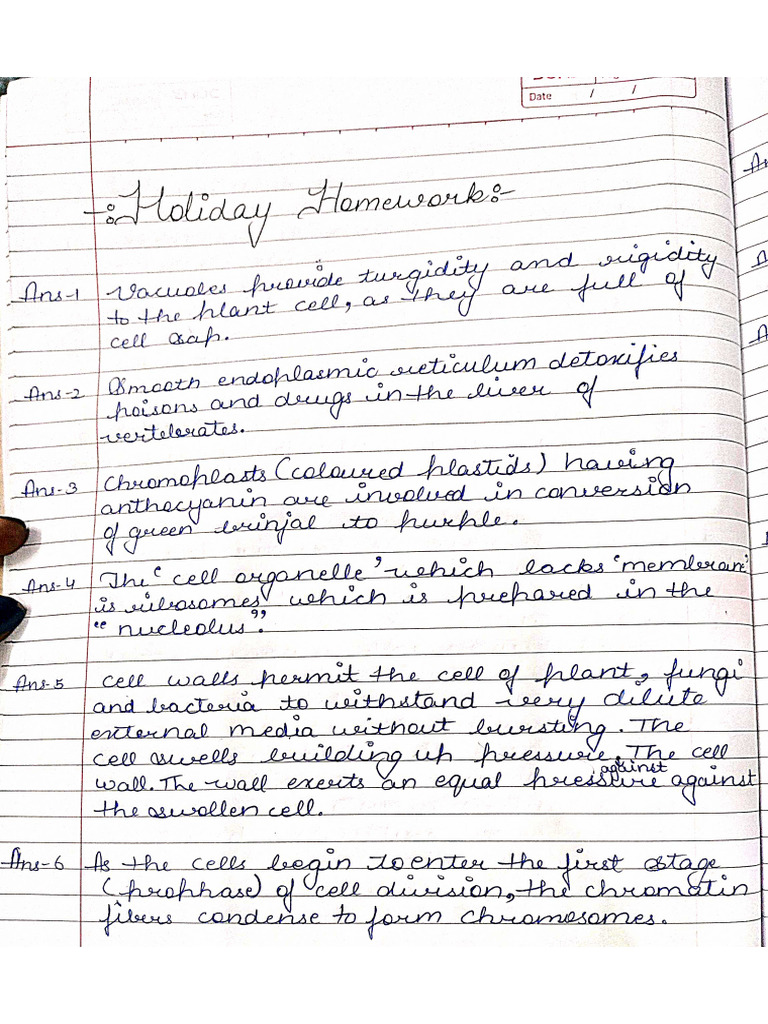 Date / /
-:Holiday Homework:-
Ans-1 Vacuoles provide turgidity and rigidity
to the plant cell, as they are full of
cell sap.
Ans-2 Smooth endoplasmic reticulum detoxifies
poisons and drugs in the liver of
vertebrates.
Ans-3 Chromoplasts (coloured plastids) having
anthocyanin are involved in conversion
of green brinjal to purple.
Ans-4 The ‘cell organelle’ which lacks ‘membrane’
is ribosomes which is prepared in the
“nucleolus”.
Ans-5 Cell walls permit the cell of plant, fungi
and bacteria to withstand very dilute
external media without bursting. The
cell swells building up pressure. The cell
against
wall. The wall exerts an equal pressure against
the swollen cell.
Ans-6 As the cells begin to enter the first stage
(prophase) of cell division, the chromatin
fibers condense to form chromosomes.